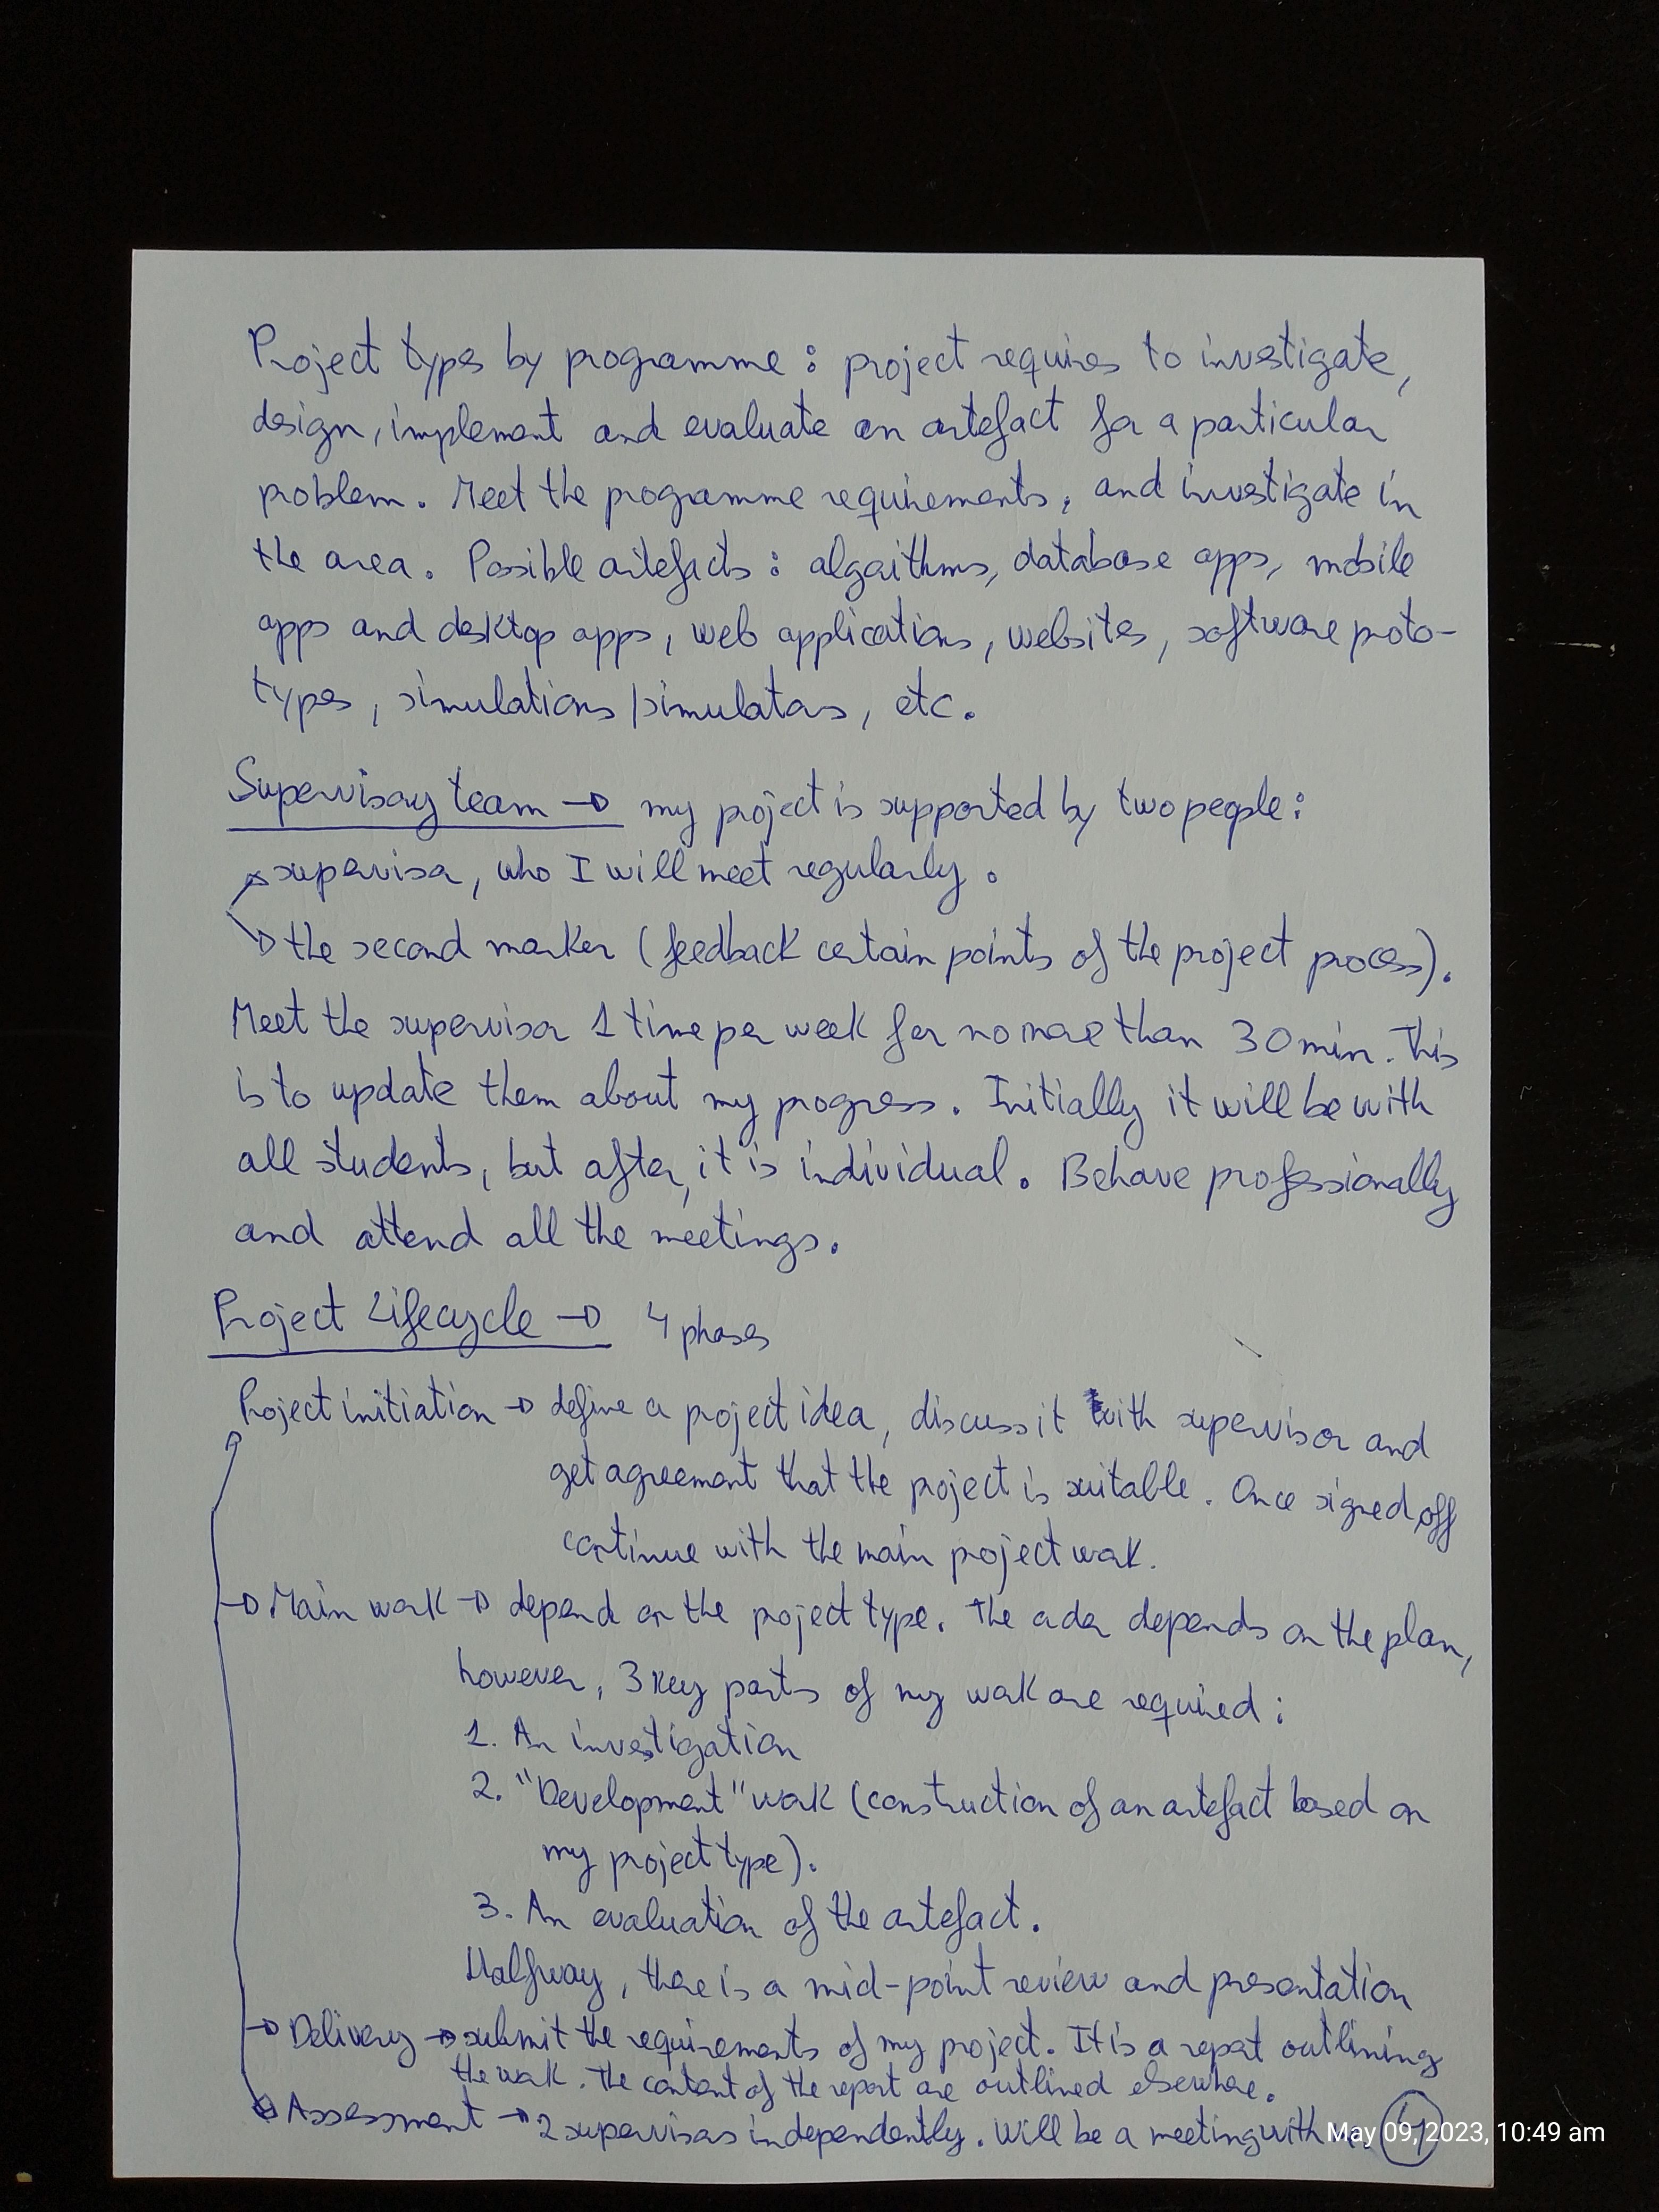 Project types by programme : project requires to investigate,
design, implement and evaluate an artefact for a particular
problem. Meet the programme requirements, and investigate in
the area. Possible artefacts : algorithms, database apps, mobile
apps and desktop apps, web applications, websites, software proto-
types, simulations/simulators, etc.
Supervisory team → my project is supported by two people:
supervisor, who I will meet regularly.
the second marker (feedback certain points of the project process).
Meet the supervisor 1 time per week for no more than 30 min. This
is to update them about my progress. Initially it will be with
all students, but after, it is individual. Behave professionally
and attend all the meetings.
Project Lifecycle → 4 phases
Project initiation → define a project idea, discuss it with supervisor and
get agreement that the project is suitable. Once signed off
continue with the main project work.
→ Main work → depend on the project type. The order depends on the plan,
however, 3 key parts of my work are required:
1. An investigation
2. "Development" work (construction of an artefact based on
my project type).
3. An evaluation of the artefact.
Halfway, there is a mid-point review and presentation
→ Delivery → submit the requirements of my project. It is a report outlining
the work. The content of the report are outlined elsewhere.
Assessment → 2 supervisors independently. Will be a meeting with
May 09, 2023, 10:49 am